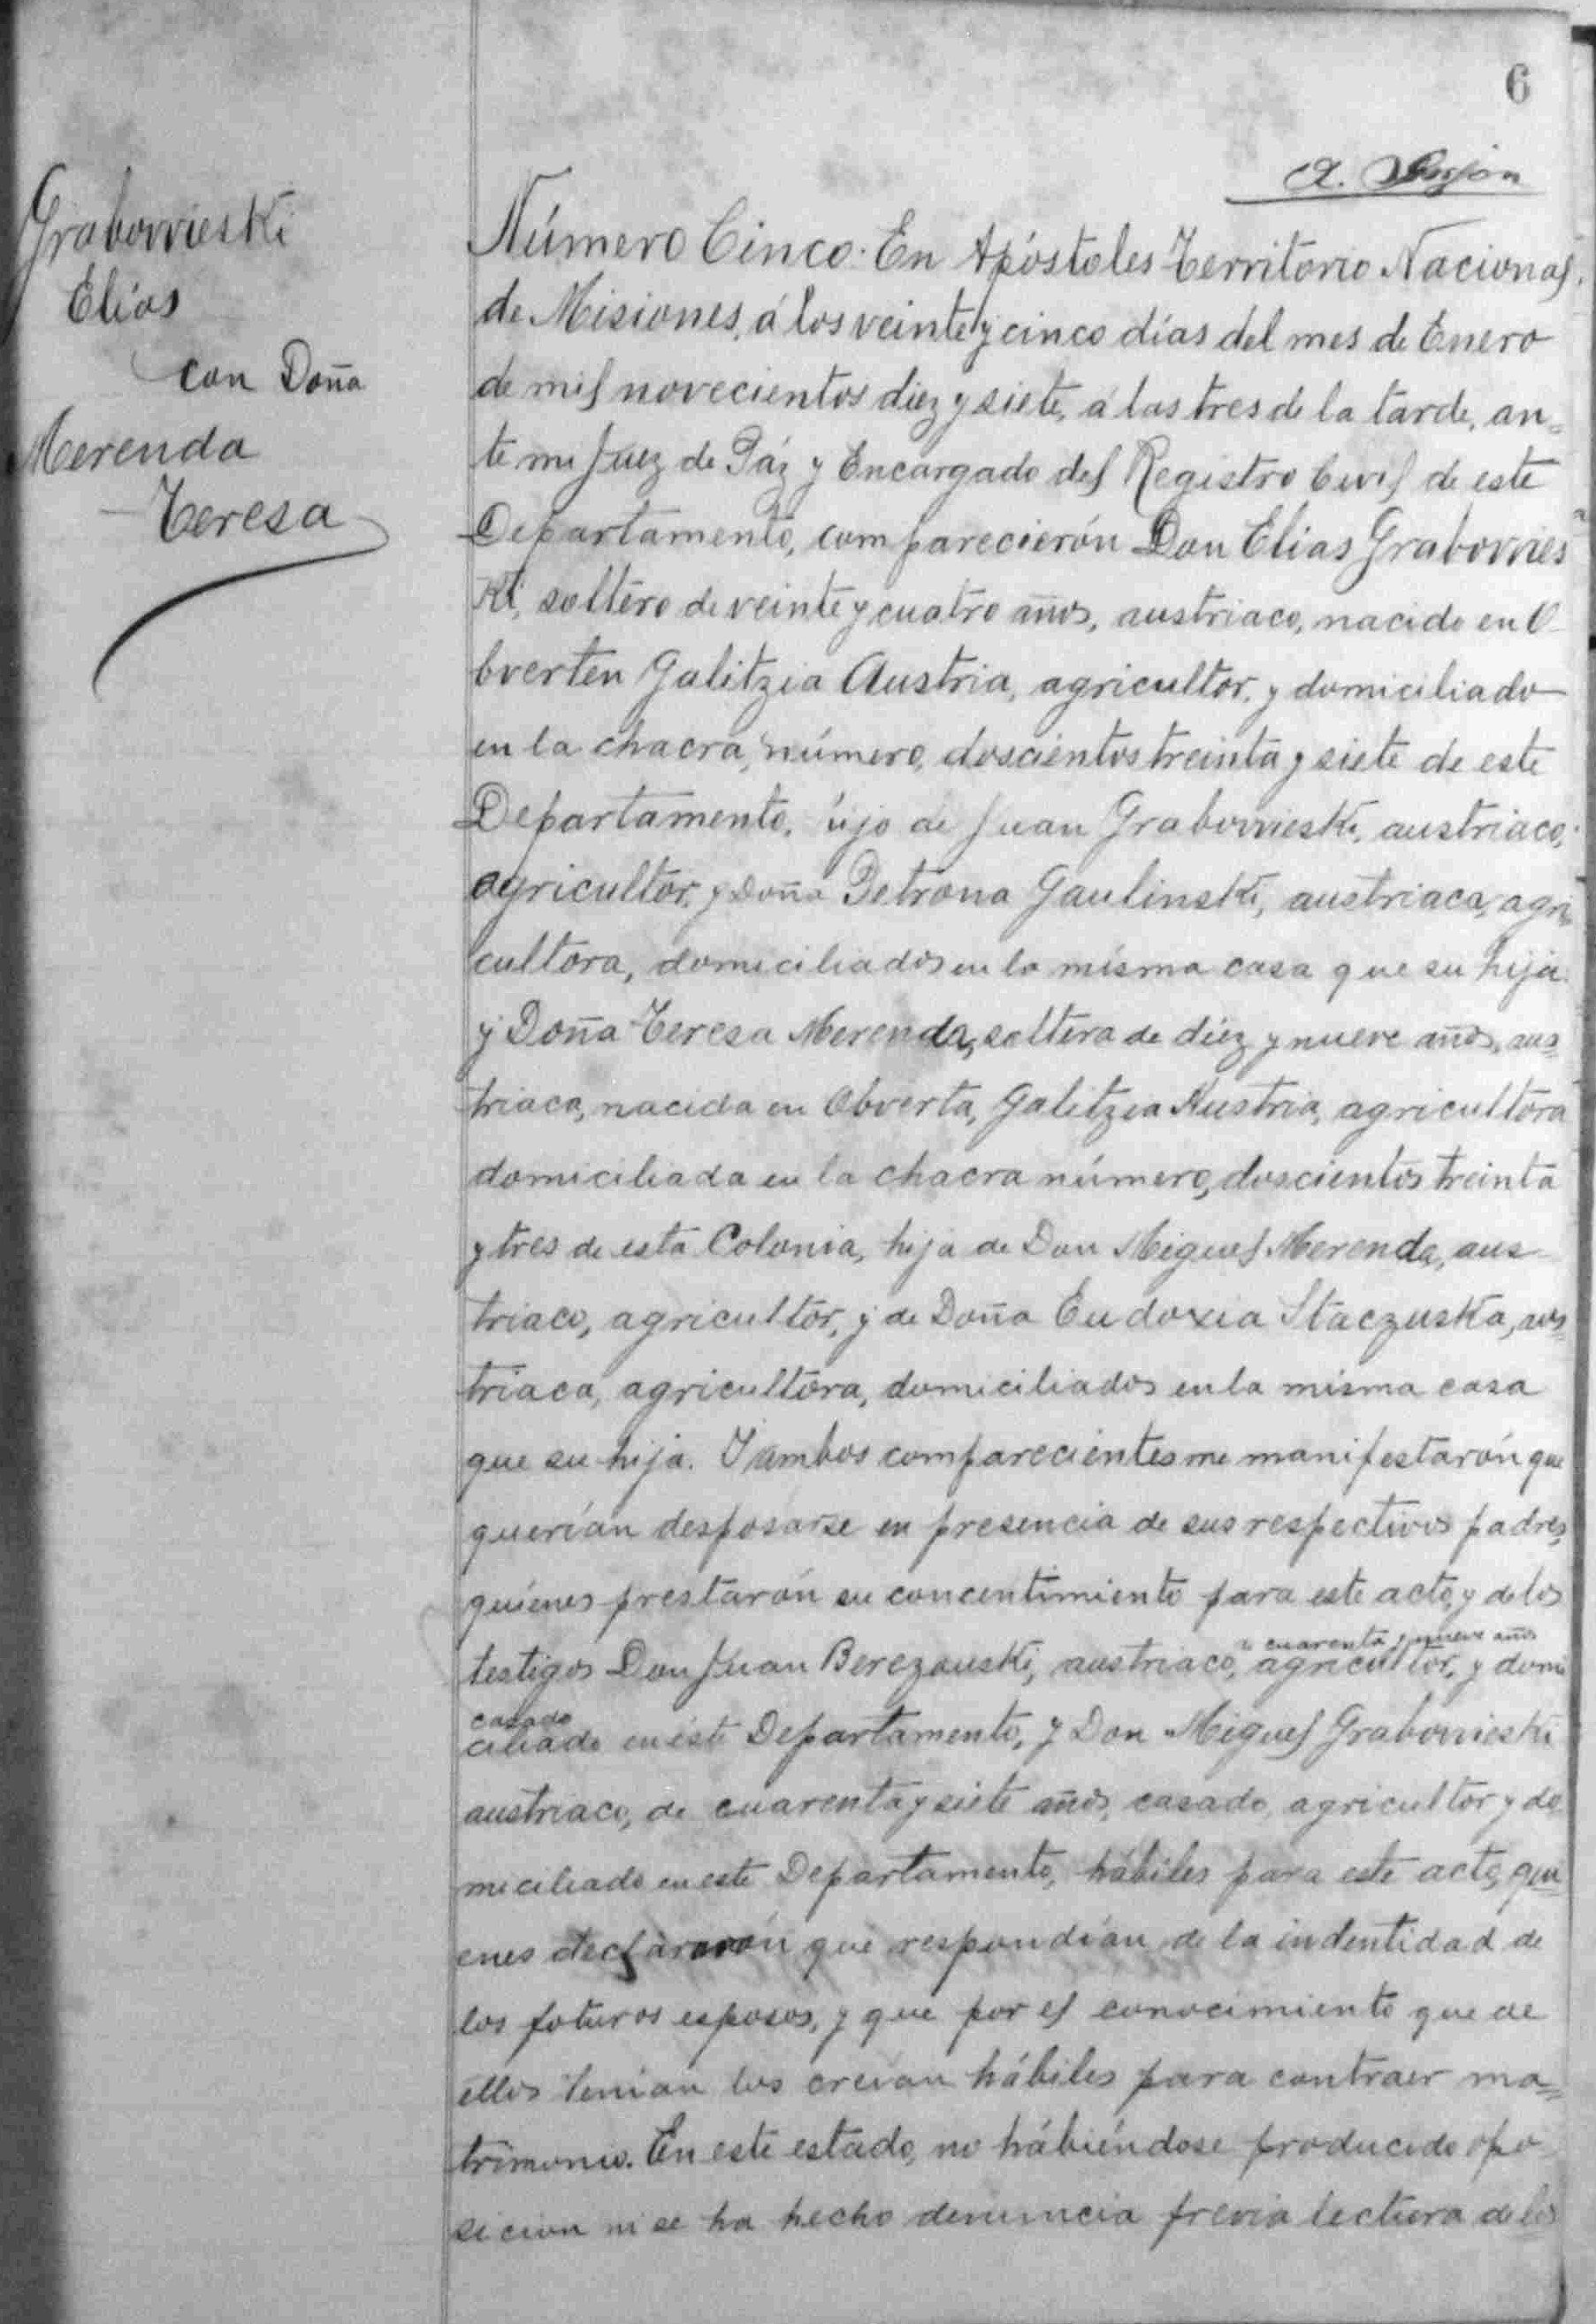 6
Grabowieski
Elías
con Doña
Merenda
Teresa
Número Cinco. En Apóstoles Territorio Nacional
de Misiones, á los veinte y cinco días del mes de Enero
de mil novecientos diez y siete, á las tres de la tarde, an=
te mi Juez de Páz y Encargado del Registro Civil de este
Departamento, comparecierón Don Elias Grabowies=
Ki, soltero de veinte y cuatro años, austriaco, nacido en O-
bverten Galitzia Austria, agricultor, y domiciliado
en la chacra, número, doscientos treinta y siete de este
Departamento, íjo de Juan Grabowieski, austriaco,
agricultor, y Doña Petrona Gaulinski, austriaca, agri=
cultora, domiciliados en la misma casa que su hija
y Doña Teresa Merenda, soltera de diez y nueve años, aus=
triaca, nacida en Obverta, Galitzia Austria, agricultora
domiciliada en la chacra número, doscientos treinta
y tres de esta Colonia, hija de Don Miguel Merenda, aus-
triaco, agricultor, y de Doña Eudoxia Staczuska, aus=
triaca, agricultora, domiciliados en la misma casa
que su hija. Y ambos comparecientes me manifestarón que
querían desposarse en presencia de sus respectivos padres,
quiénes prestarón su concentimiento para este acto, y de los
de cuarenta y nueve años
testigos Don Juan Berezouski, austriaco, agricultor, y domi
casado
ciliado en éste Departamento, y Don Miguel Grabowieski
austriaco, de cuarenta y siete años, casado, agricultor y do
miciliado en este Departamento, hábiles para este acto, qui=
enes declararón que respondían de la indentidad de
los foturos esposos, y que por el conocimiento que de
ellos tenian los creían hábiles para contraer ma=
trimonio. En este estado, no hábiéndose producido opo
sicion ni se ha hecho denuncia previa lectura de los